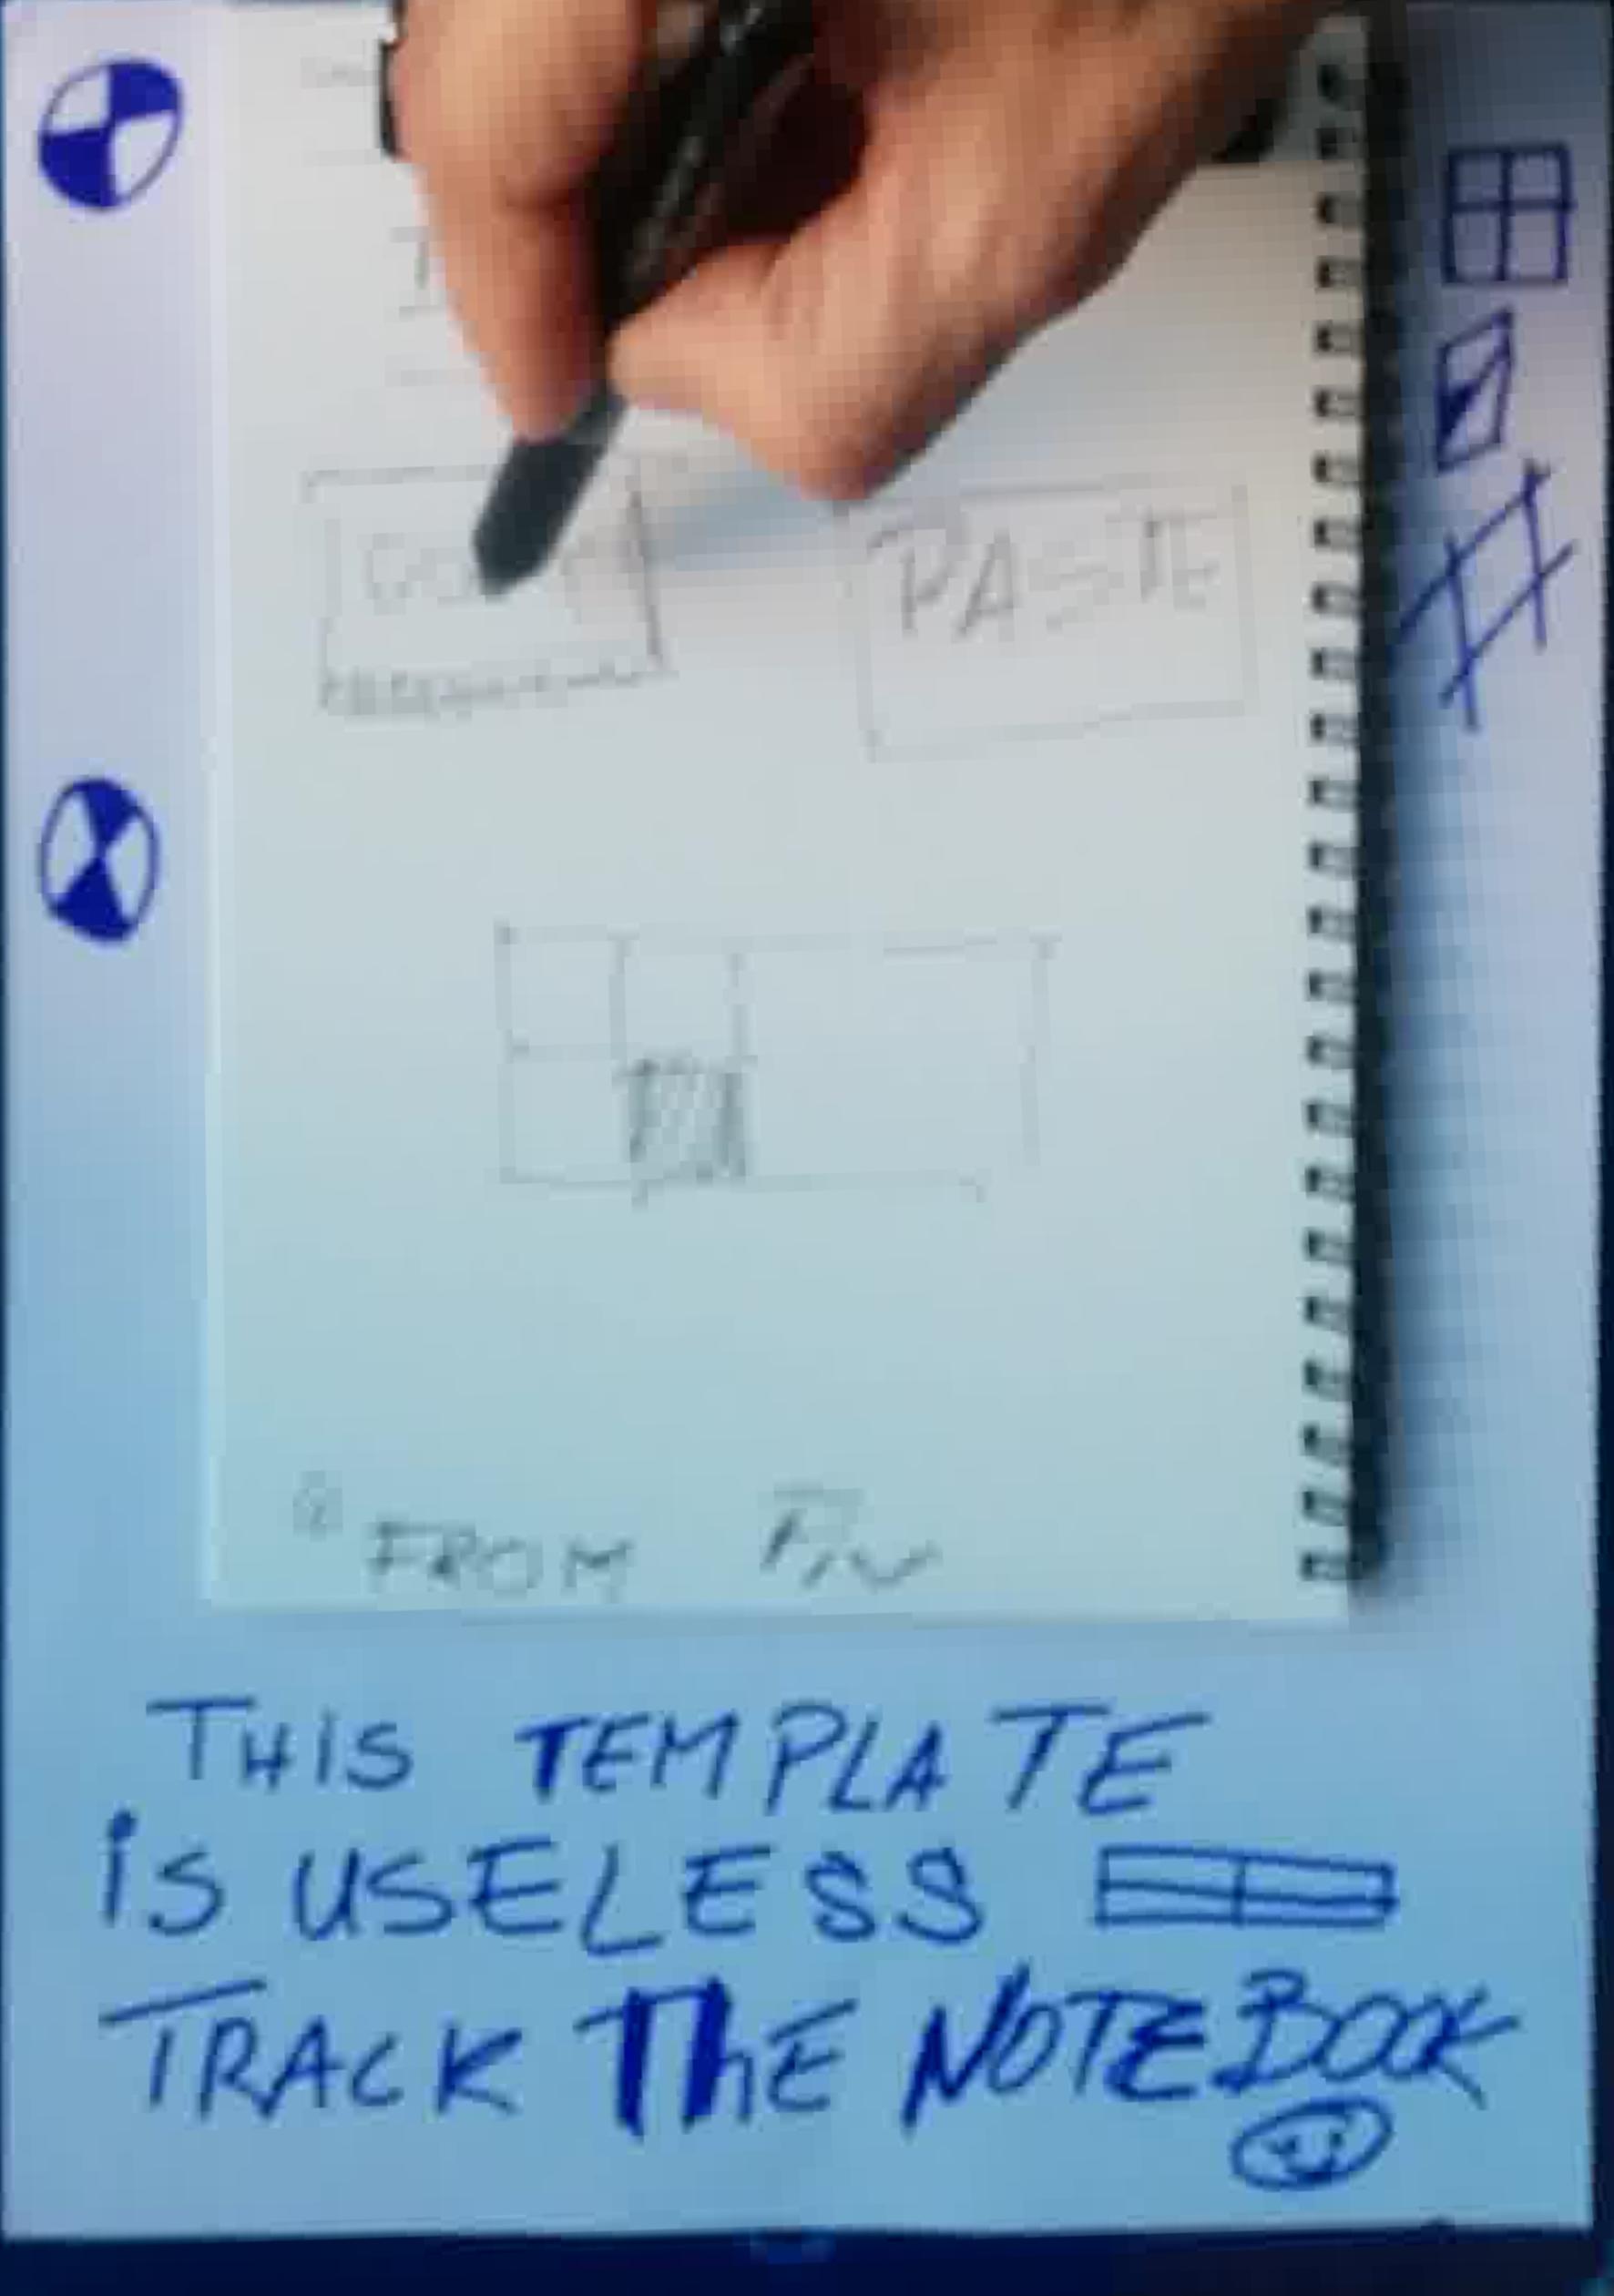 PASTE
FROM
THiS TEMPLATE
iS USELESS
TRACK ThE NOTEBOOK